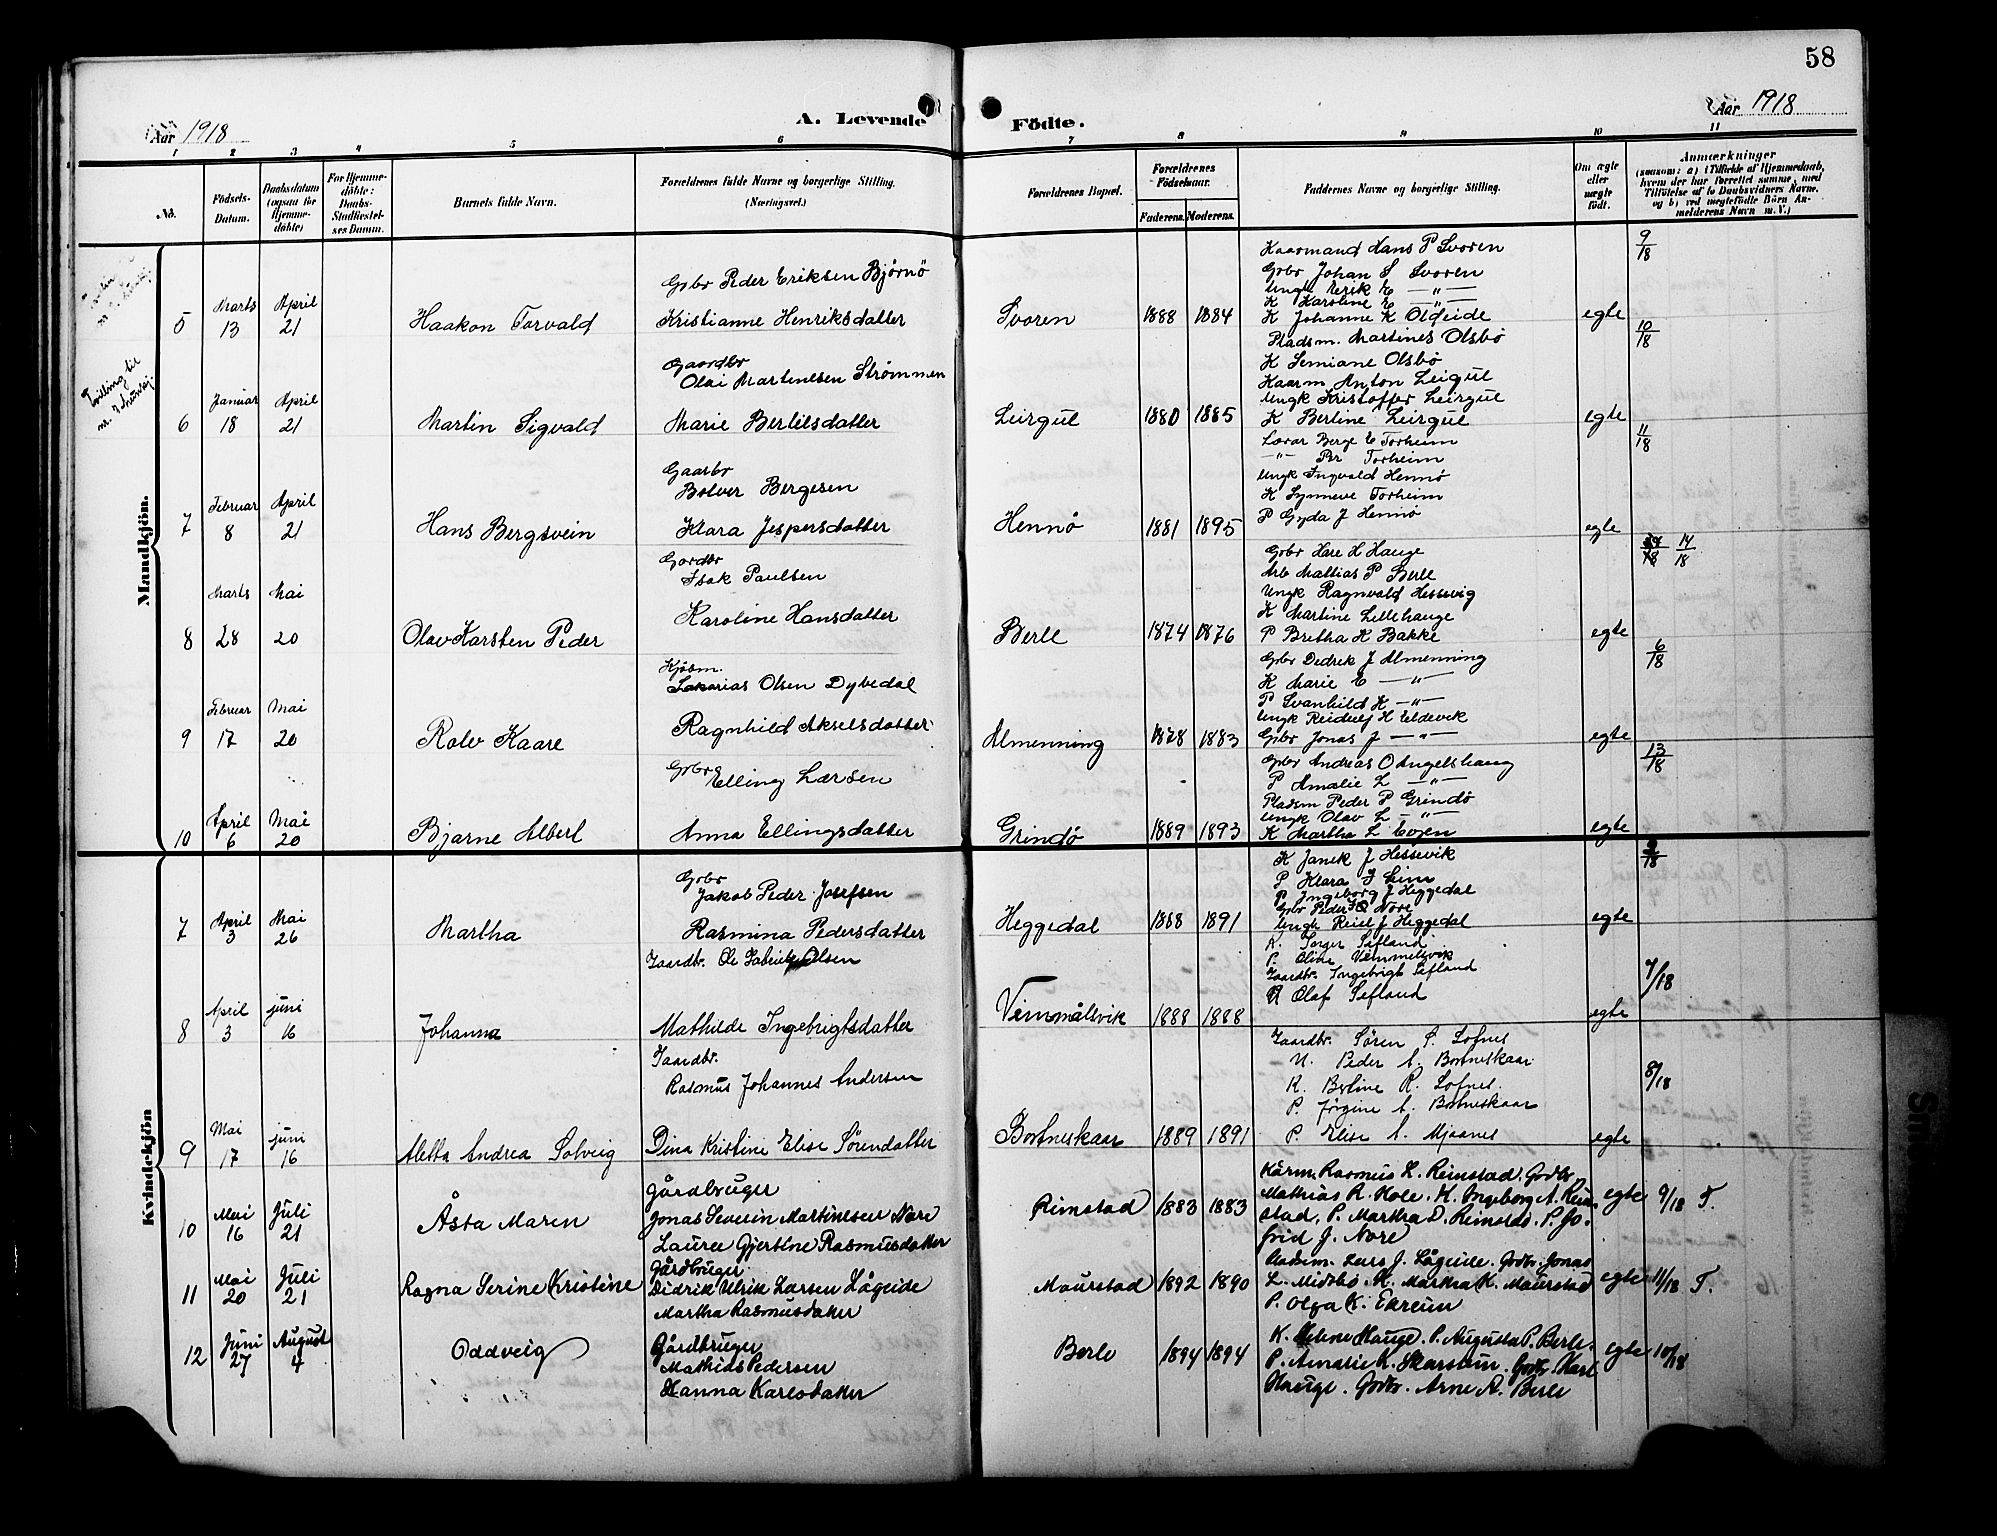 58
Aar 1918
A. Levende Födte.
Aar 1918
1 2 3 4 5 6 7 8 9 10 11
No.
Födsels-
Datum.
Daabsdatum
(ogsaa for
Hjemme-
döbte)
For Hjemme-
döbte:
Daabs-
Stadfæstel-
ses Datum.
Barnets fulde Navn.
Forældrenes fulde Navne og borgerlige Stilling.
(Næringsvei.)
Forældrenes Bopæl.
Forældrenes
Födselsaar.
Faderens. Moderens.
Faddernes Navne og borgerlige Stilling.
Om ægte
eller
uægte
födt.
Anmærkninger
(saasom: a) i Tilfælde af Hjemmedaab,
hvem der har forrettet samme, med
Tilföielse af to Daabsvidners Navne,
og b) ved uægtefödte Börn An-
melderens Navn m. V.)
Mandkjön.
5
Marts
13
April
21
Haakon Torvald
Grbr Peder Eriksen Bjørnö
Kristianne Henriksdatter
Svoren
1888 1884
Kaarmand Hans P Svoren
Grbr Johan S Svoren
Ungk Eerik E —"—
K Karoline E —"—
K Johanne K Oldeide
egte
9/18
Tvilling til
6
Januar
18
April
21
Martin Sigvald
Gaardbr
Olai Martinesen Strømmen
Marie Bertilsdatter
Leirgul
1880 1885
Pladsm. Martines Olsbö
K Semiane Olsbö
Kaarm Anton Leigul
Ungk Kristoffer Leirgul
K Berline Leirgul
egte
10/18
7
Februar
8
April
21
Hans Bergsvein
Gaarbr
Bolver Bergesen
Klara Jespersdatter
Hennö
1881 1895
Lærar Berge E Torheim
—"— Per Torheim
Ungk Ingvald Hennö
K Synneve Torheim
P Gyda J Hennö
egte
11/18
8
Marts
28
Mai
20
Olav Karsten Peder
Gordbr
Isak Paulsen
Karoline Hansdatter
Berle
1874 1876
Grbr Hare H Hauge
Arb Mattias P Berle
Ungk Ragnvald Hessevig
K Martine Lillehauge
P Bretha K Bakke
egte
14/18
9
Februar
17
Mai
20
Rolv Kaare
Kjösm.
Sakarias Olsen Dybedal
Ragnhild Akselsdatter
Almenning
1878 1883
Grbr Dedrek J Almenning
K Marie E —"—
P Svanhild H —"—
Ungk Reidulf H Eldevik
Grbr Jonas J —"—
egte
6/18
10
April
6
Mai
20
Bjarne Albert
Grbr
Elling Larsen
Anna Ellingsdatter
Grindö
1889 1893
Grbr Andreas O Angelshaug
P Amalie L —"—
Pladsm Peder P Grindö
Ungk Olav L —"—
K Martha L
egte
13/18
Kvindekjön
7
April
3
Mai
26
Martha
Grbr
Jakob Peder Josefsen
Rasmina Pedersdatter
Heggedal
1888 1891
K Janik J Hessevik
P Klara J Leim
P Ingeborg J Heggedal
Grbr Peder Nore
Ungk Reiel J Heggedal
egte
8
April
3
juni
16
Johanna
Gaardbr. Ole Gabriel Olsen
Mathilde Ingebrigtsdatter
Vemmelsvik
1888 1888
K. Inger Sefland
P. Oline Vemmelsvik
Gaardbr. Ingebrigt Sefland
U Olaf Sefland
egte
7/18
9
Mai
17
juni
16
Aletta Andrea Solveig
Gaardbr.
Rasmus Johannes Andersen
Dina Kristine Elise Sørendatter
Bortneskaar
1889 1891
Gaardbr. Søren S. Lofnes
U. Peder A. Bortneskaar
K. Berline R. Lofnes.
P. Jørgine A. Bortneskaar
P. Elise A. Mjaanes
egte
8/18
10
Mai
16
Juli
21
Åsta Maren
Gårdbruger
Jonas Severin Martinesen Nore
Lauree Gjertine Rasmusdatter
Rimstad
1883 1883
Kårm. Rasmus L. Reimstad. Grdbr.
Mathias R. Hole. K. Ingeborg A. Reim
stad, P. Martha D. Reimstad. P. Jo-
frid J. Nore.
egte
9/18 T.
11
Mai
20
Juli
21
Ragna Serine Kristine
Gårdbruger
Didrik Ulrik Larsen Lågeide
Martha Rasmusdatter
Maurstad
1892 1890
Pladsm. Lars J. Lågeide. Grdbr. Jonas
L. Midtbö K. Martha K. Maurstad
P. Olga K. Ekreim
egte
11/18 T.
12
Juni
27
August
4
Oddveig
Gårdbruger
Mathias Pedersen
Hanna Karlsdatter
Berle
1894 1894
K. Helene Hauge. P. Augusta P. Berle.
P. Amalie K. Skarstein. Grdbr. Karl
Hauge. Grdbr. Arne A. Berle
egte
10/18